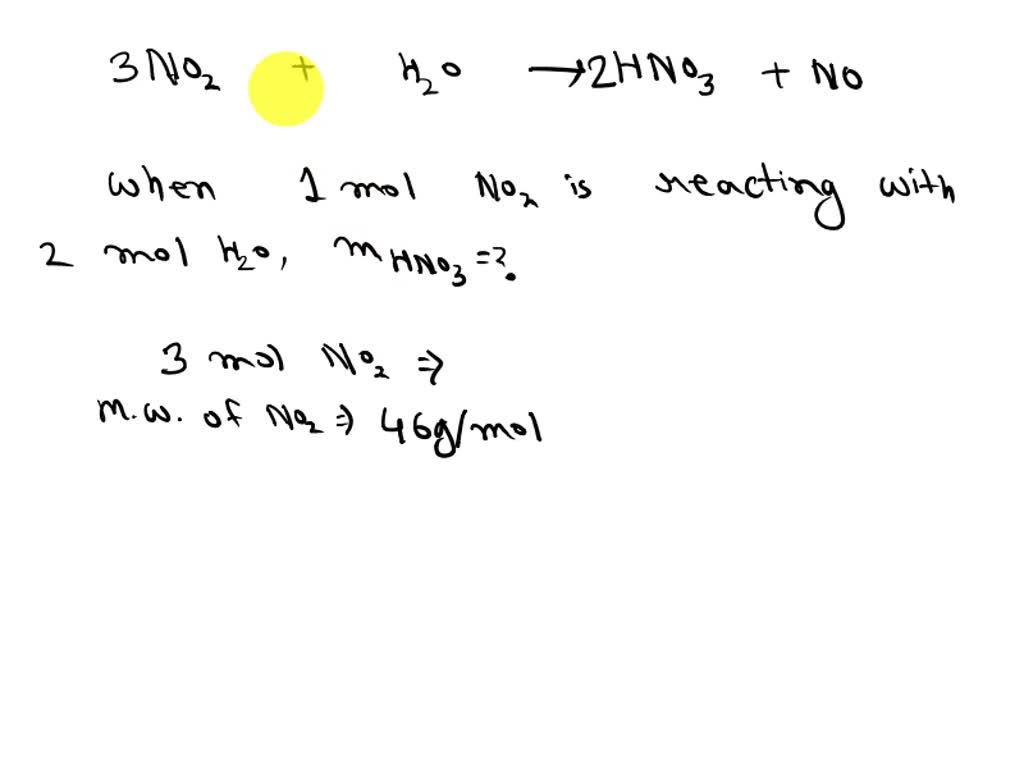 3NO₂ + H₂O → 2HNO₃ + NO
when 1 mol NO₂ is reacting with
2 mol H₂O, m HNO₃ = ?.
3 mol NO₂ ⇒
m.w. of NO₂ ⇒ 46g/mol